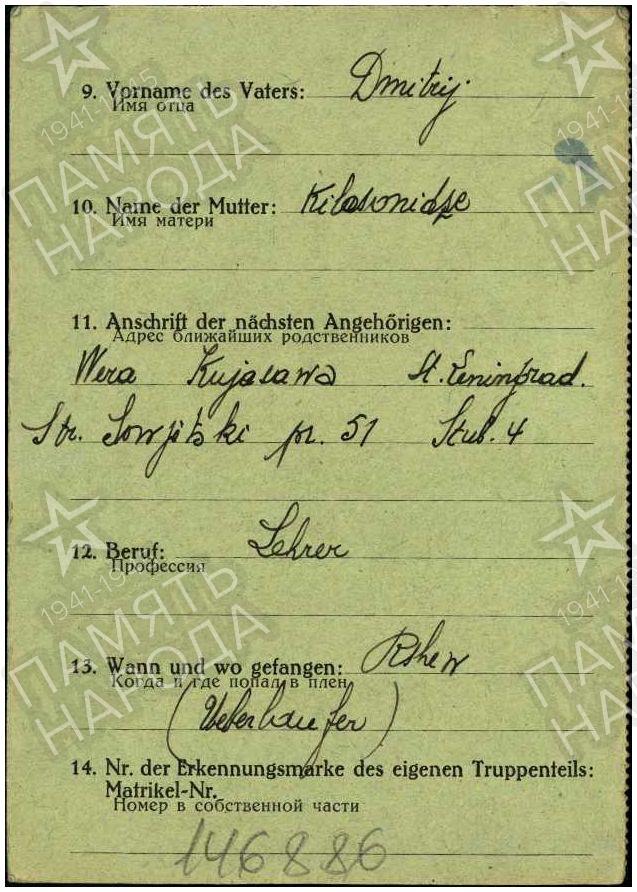 9. Vorname des Vaters: Dmitrij
Имя отца
10. Name der Mutter:
Имя матери
11. Anschrift der nächsten Angehörigen:
Адрес ближайших родственников
Wera Kujasawa St. Leningrad.
Str. Sowjétski pr. 51 Stub. 4
12. Beruf: Lehrer
Профессия
13. Wann und wo gefangen: Rshew
Когда и где попал в плен
(Ueberläufer)
14. Nr. der Erkennungsmarke des eigenen Truppenteils:
Matrikel-Nr.
Номер в собственной части
146886
1941-1945
ПАМЯТЬ
НАРОДА
1941-1945
ПАМЯТЬ
НАРОДА
1941-1945
ПАМЯТЬ
НАРОДА
1941-1945
ПАМЯТЬ
НАРОДА